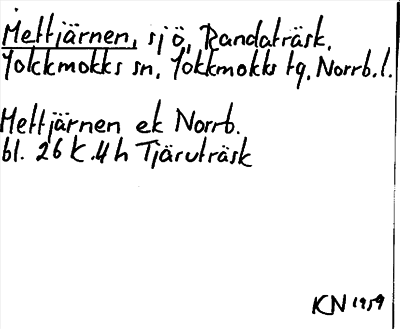 Mettjärnen, sjö, Randaträsk.
Jokkmokks sn, Jokkmokks tg, Norrb.l.
Mettjärnen ek Norrb.
bl. 26 K.4h Tjäruträsk
KN 1959